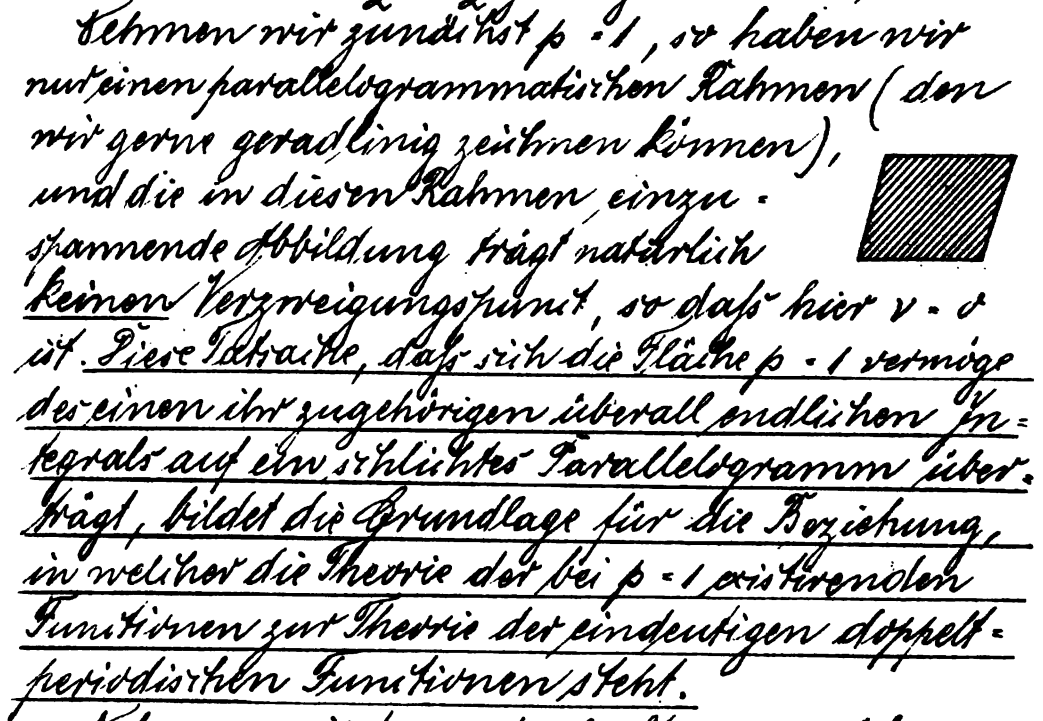 Nehmen wir zunächst p = 1, so haben wir
nur einen parallelogrammatischen Rahmen (den
wir gerne geradlinig zeichnen können),
und die in diesen Rahmen einzu=
spannende Abbildung trägt natürlich
keinen Verzweigungspunct, so daß hier v = 0
ist. Diese Tatsache, daß sich die Fläche p = 1 vermöge
des einen ihr zugehörigen überall endlichen In=
tegrals auf ein schlichtes Parallelogramm über=
trägt, bildet die Grundlage für die Beziehung,
in welcher die Theorie der bei p = 1 existirenden
Functionen zur Theorie der eindeutigen doppelt=
periodischen Functionen steht.